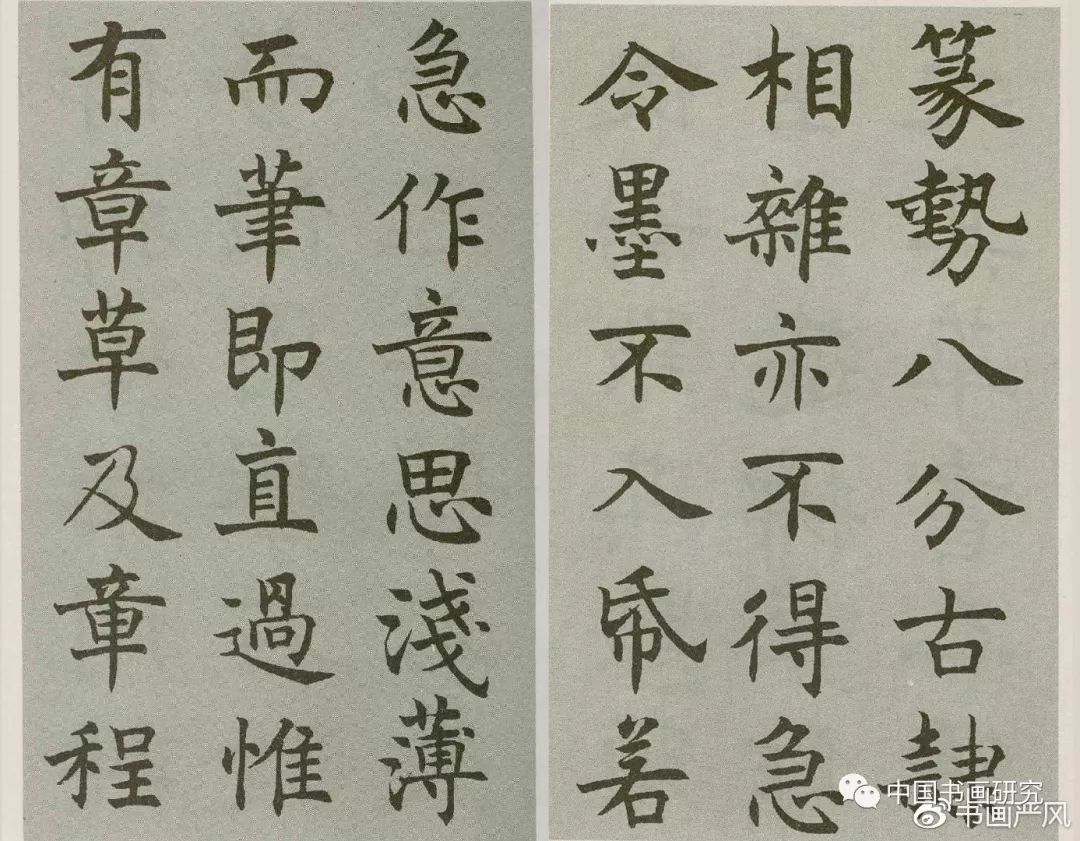 篆勢八分古隸
相雜亦不得急
令墨不入帋若
急作意思淺薄
而筆即直過惟
有章草及章程
中国书画研究
书画严风